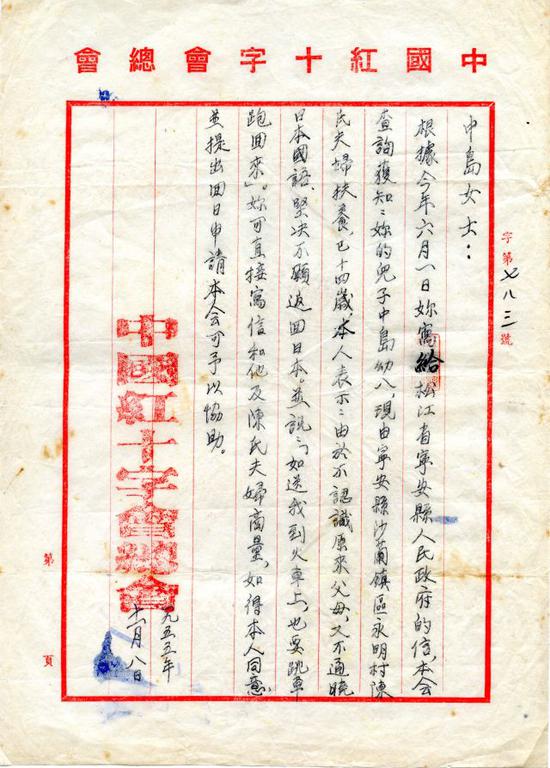 中國紅十字會總會
字第七八三號
中島女士：
根據今年六月一日妳寫給松江省寧安縣人民政府的信，本会
查詢獲知：妳的兒子中島幼八，現由寧安縣沙蘭鎮區永明村陳
氏夫婦扶養，已十四歲，本人表示：由於不認識原來父母，又不通曉
日本國語，堅决不願返回日本。並說：「如送我到火車上，也要跳車
跑回來」。妳可直接寫信和他及陳氏夫婦商量，如得本人同意，
並提出回日申請本会可予以協助。
中國紅十字會總會
一九五五年
十一月八日
第 頁